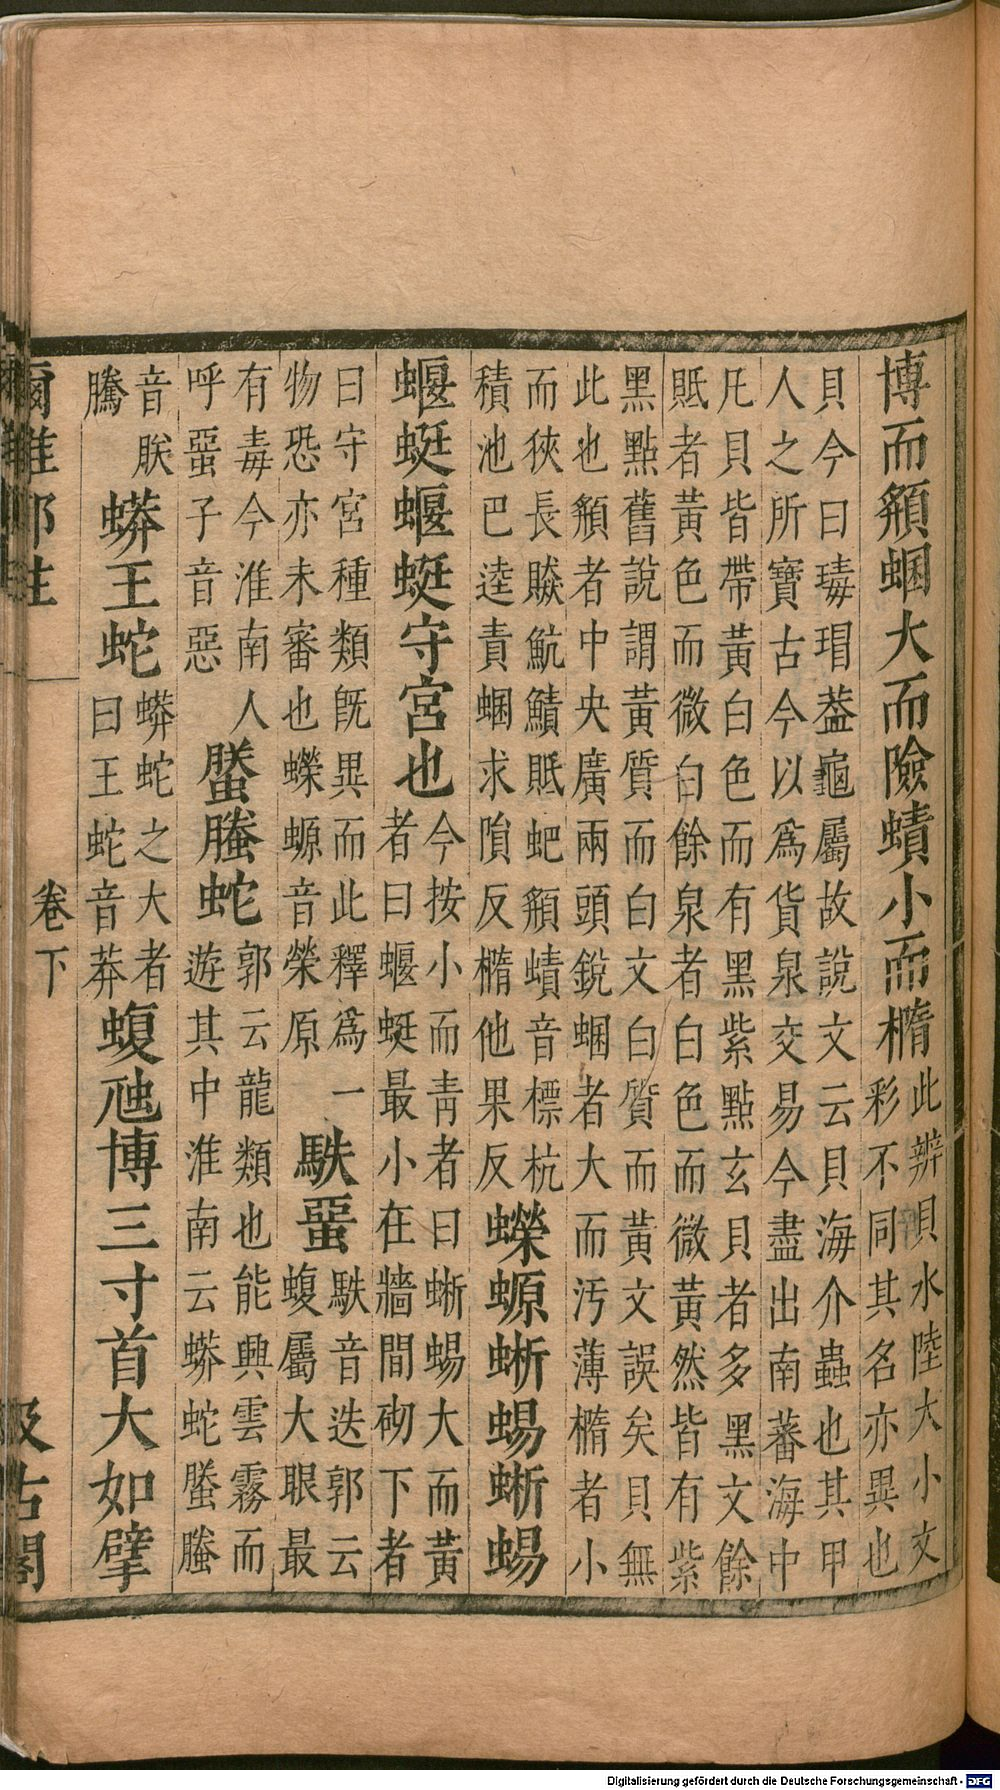 博而頯蜠大而險蟦小而橢此辨貝水陸大小文
彩不同其名亦異也
貝今曰瑇瑁葢龜屬故說文云貝海介蟲也其甲
人之所寶古今以爲貨泉交易今盡出南蕃海中
凡貝皆帶黃白色而有黑紫點玄貝者多黑文餘
貾者黃色而微白餘泉者白色而微黃然皆有紫
黑點舊說謂黃質而白文白質而黃文誤矣貝無
此也頯者中央廣兩頭銳蜠者大而汚薄橢者小
而狹長賧魧鰿貾蚆頯蟦音標杭
積池巴逵責蜠求隕反橢他果反蠑螈蜥蜴蜥蜴
蝘蜓蝘蜓守宮也今按小而靑者曰蜥蜴大而黃
者曰蝘蜓最小在牆間砌下者
曰守宮種類旣異而此釋爲一
物恐亦未審也蠑螈音榮原镻蝁镻音迭郭云
蝮屬大眼最
有毒今淮南人
呼蝁子音惡螣螣蛇郭云龍類也能興雲霧而
遊其中淮南云蟒蛇螣螣
音朕
騰蟒王蛇蟒蛇之大者
曰王蛇音莽蝮虺博三寸首大如擘
爾雅鄭注
卷下
汲古閣
Digitalisierung gefördert durch die Deutsche Forschungsgemeinschaft - DFG